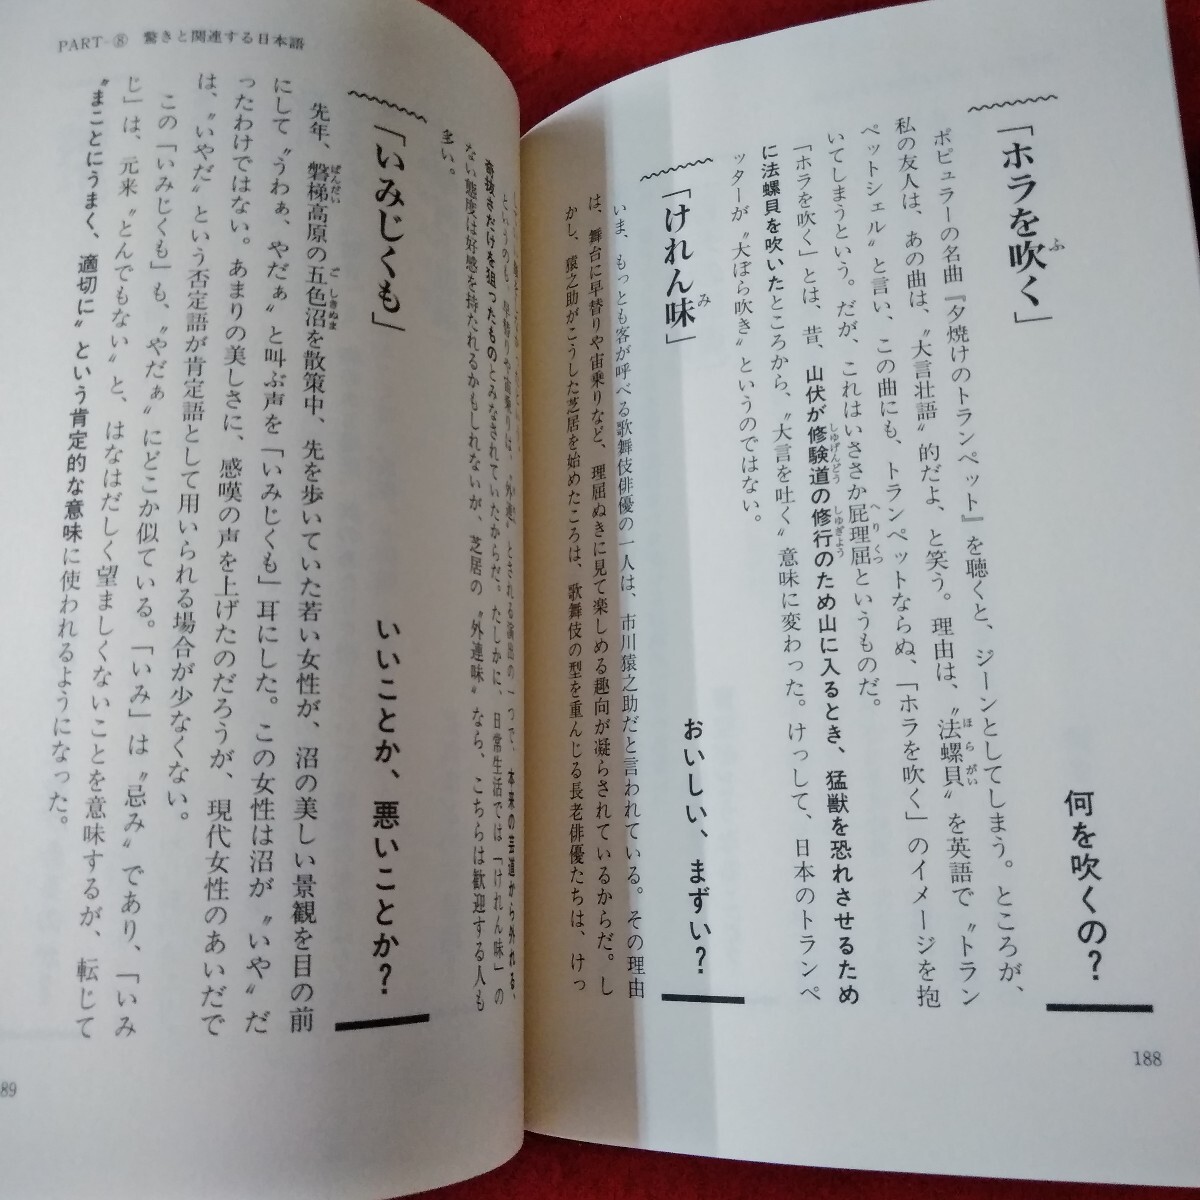 「ホラを吹く」 何を吹くの？
ポピュラーの名曲『夕焼けのトランペット』を聴くと、ジーンとしてしまう。ところが、
私の友人は、あの曲は、〝大言壮語〟的だよ、と笑う。理由は、〝法螺貝〟を英語で〝トラン
ペットシェル〟と言い、この曲にも、トランペットならぬ、「ホラを吹く」のイメージを抱
いてしまうという。だが、これはいささか屁理屈というものだ。
「ホラを吹く」とは、昔、山伏が修験道の修行のため山に入るとき、猛獣を恐れさせるため
に法螺貝を吹いたところから、〝大言を吐く〟意味に変わった。けっして、日本のトランペ
ッターが〝大ぼら吹き〟というのではない。
「けれん味」 おいしい、まずい？
いま、もっとも客が呼べる歌舞伎俳優の一人は、市川猿之助だと言われている。その理由
は、舞台に早替りや宙乗りなど、理屈ぬきに見て楽しめる趣向が凝らされているからだ。し
かし、猿之助がこうした芝居を始めたころは、歌舞伎の型を重んじる長老俳優たちは、けっ
188
PART-⑧ 驚きと関連する日本語
というのも、早替りや宙乗りは、〝外連〟とされる演出の一つで、本来の芸道から外れる、
奇抜さだけを狙ったものとみなされていたからだ。たしかに、日常生活では「けれん味」の
ない態度は好感を持たれるかもしれないが、芝居の〝外連味〟なら、こちらは歓迎する人も
多い。
「いみじくも」 いいことか、悪いことか？
先年、磐梯高原の五色沼を散策中、先を歩いていた若い女性が、沼の美しい景観を目の前
にして〝うわぁ、やだぁ〟と叫ぶ声を「いみじくも」耳にした。この女性は沼が〝いや〟だ
ったわけではない。あまりの美しさに、感嘆の声を上げたのだろうが、現代女性のあいだで
は、〝いやだ〟という否定語が肯定語として用いられる場合が少なくない。
この「いみじくも」も、〝やだぁ〟にどこか似ている。「いみ」は〝忌み〟であり、「いみ
じ」は、元来〝とんでもない〟と、はなはだしく望ましくないことを意味するが、転じて
〝まことにうまく、適切に〟という肯定的な意味に使われるようになった。
89